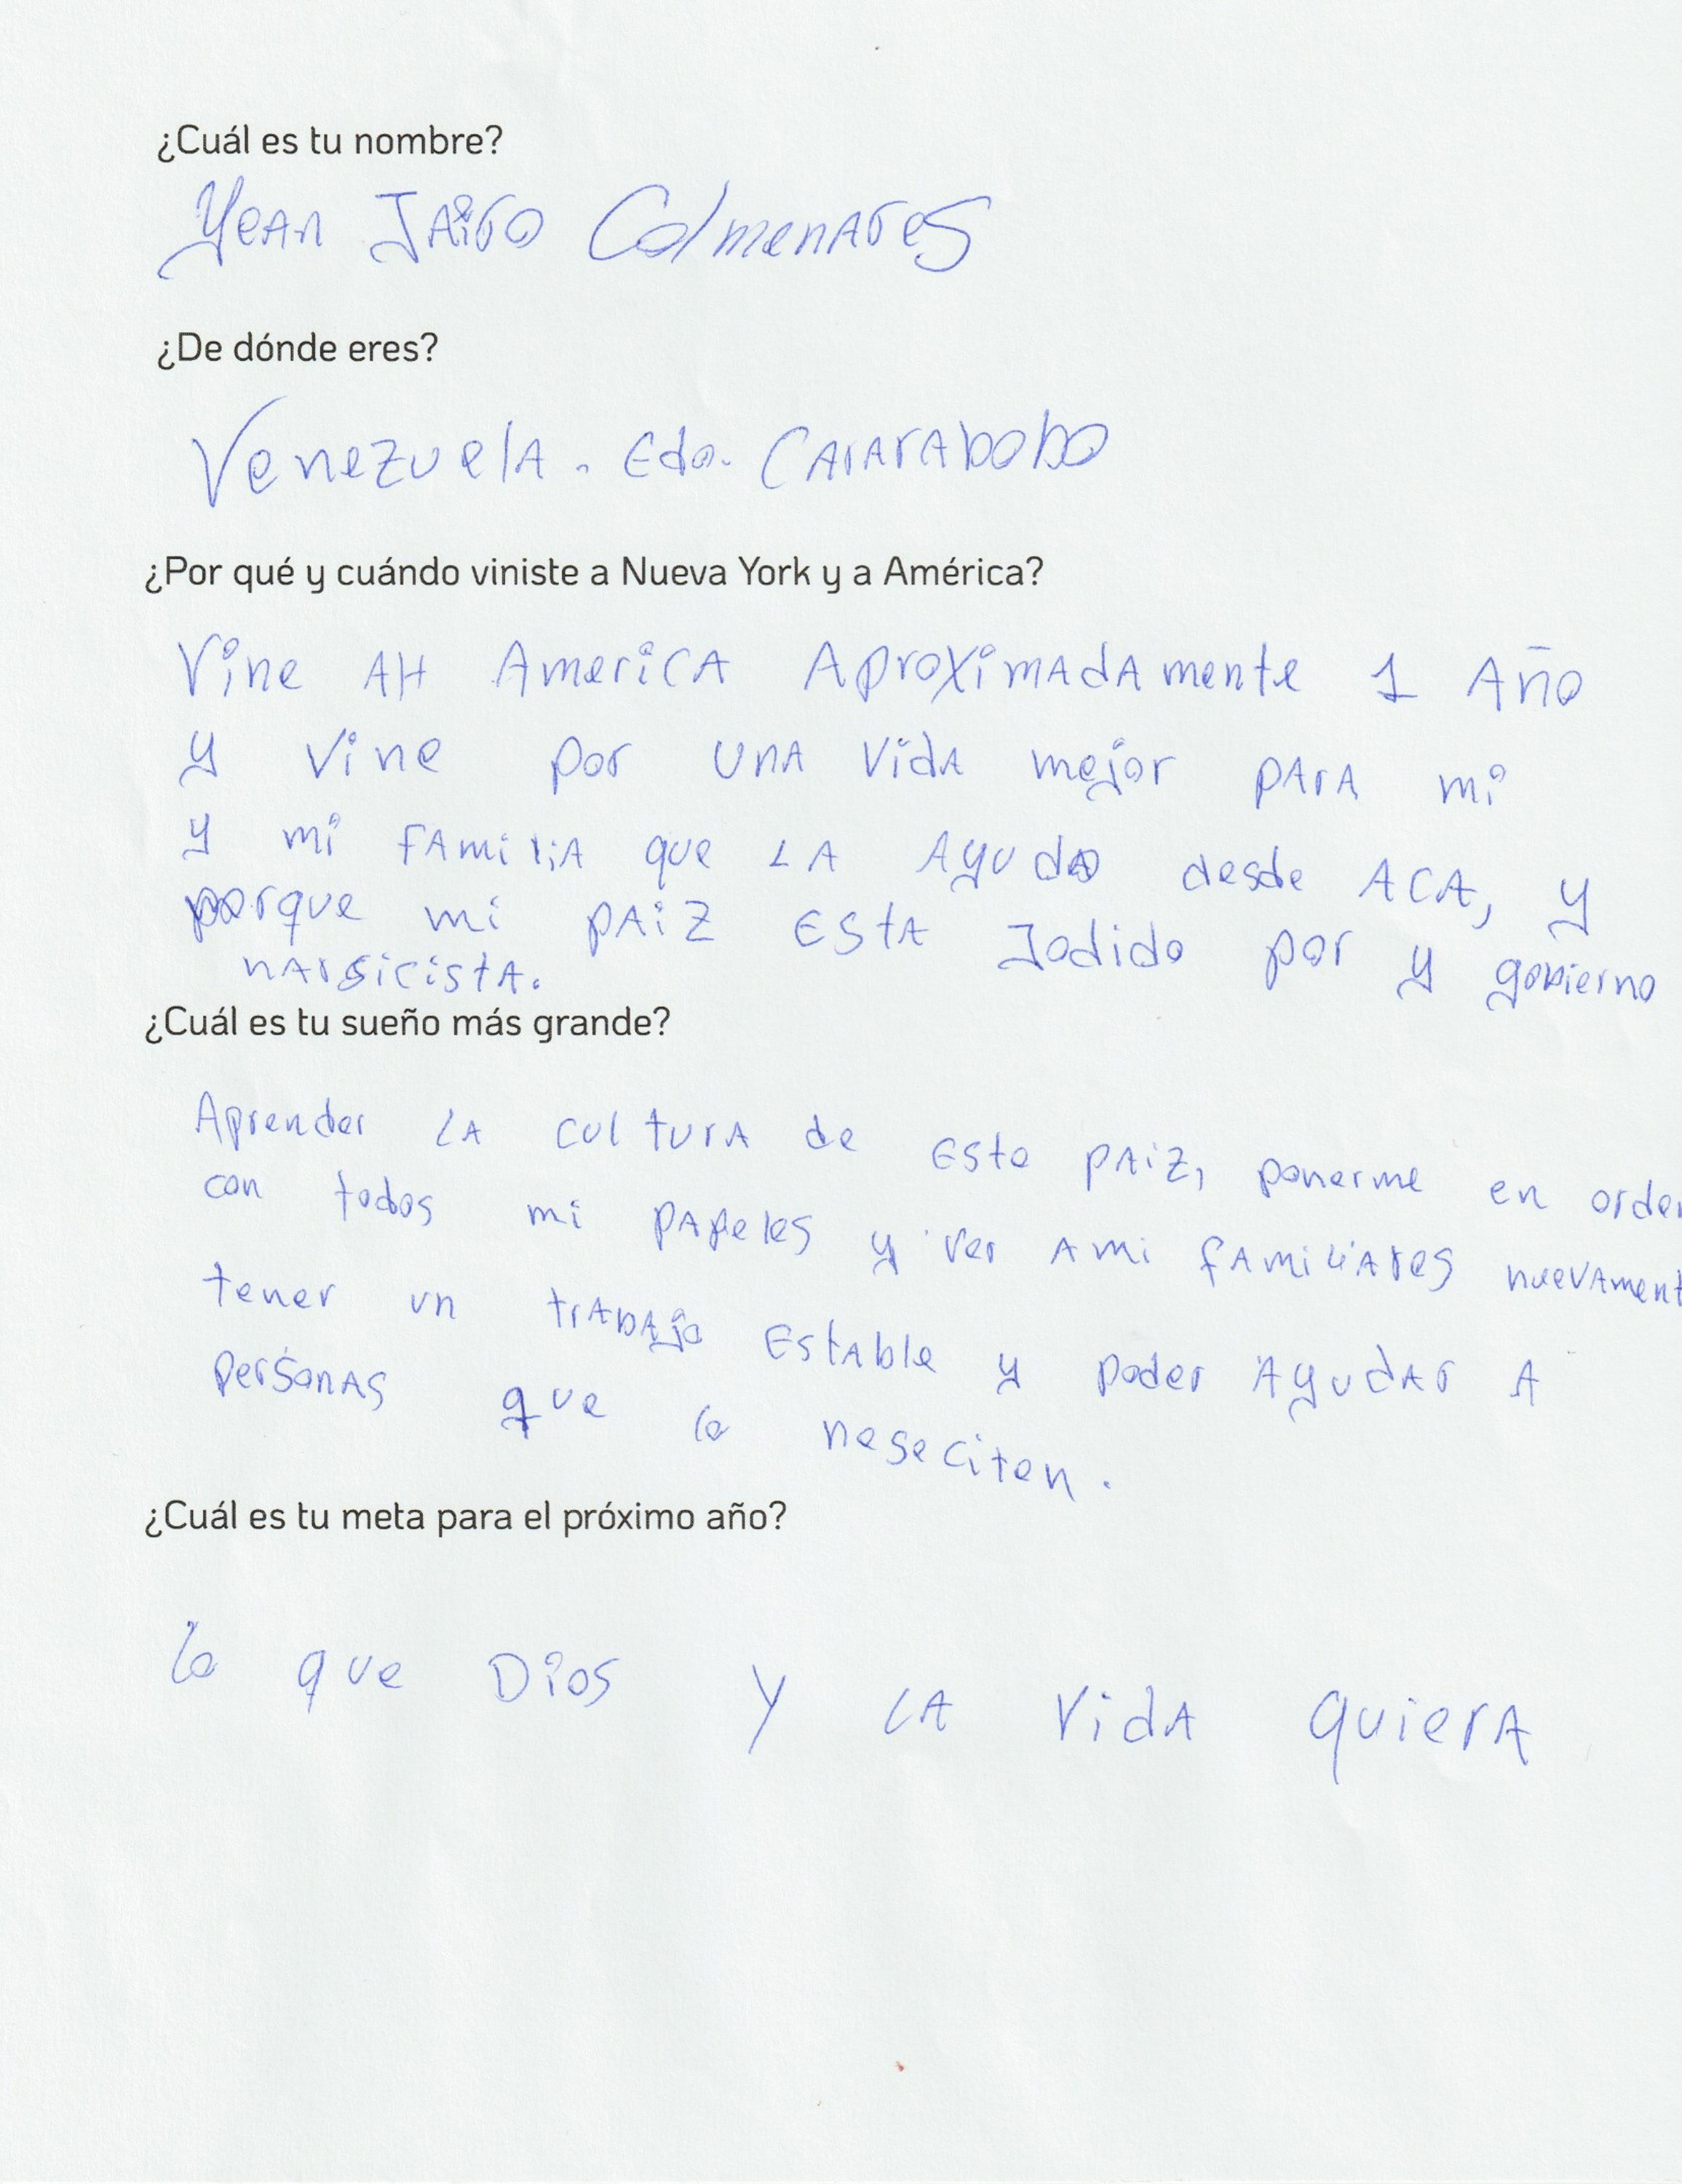 ¿Cuál es tu nombre?
Yean Jairo Colmenares
¿De dónde eres?
Venezuela. Edo. Cararabobo
¿Por qué y cuándo viniste a Nueva York y a América?
Vine AH America Aproximadamente 1 Año
y vine por una vida mejor para mi
y mi familia que LA Ayudo desde ACA, y
porque mi paiz Esta Jodido por y gobierno
narsicista.
¿Cuál es tu sueño más grande?
Aprender LA cultura de Este paiz, ponerme en orden
con todos mi papeles y ver Ami familiares nuevament
tener un trabajo Estable y poder Ayudar A
personas que lo neseciten.
¿Cuál es tu meta para el próximo año?
lo que Dios y LA vida quiera